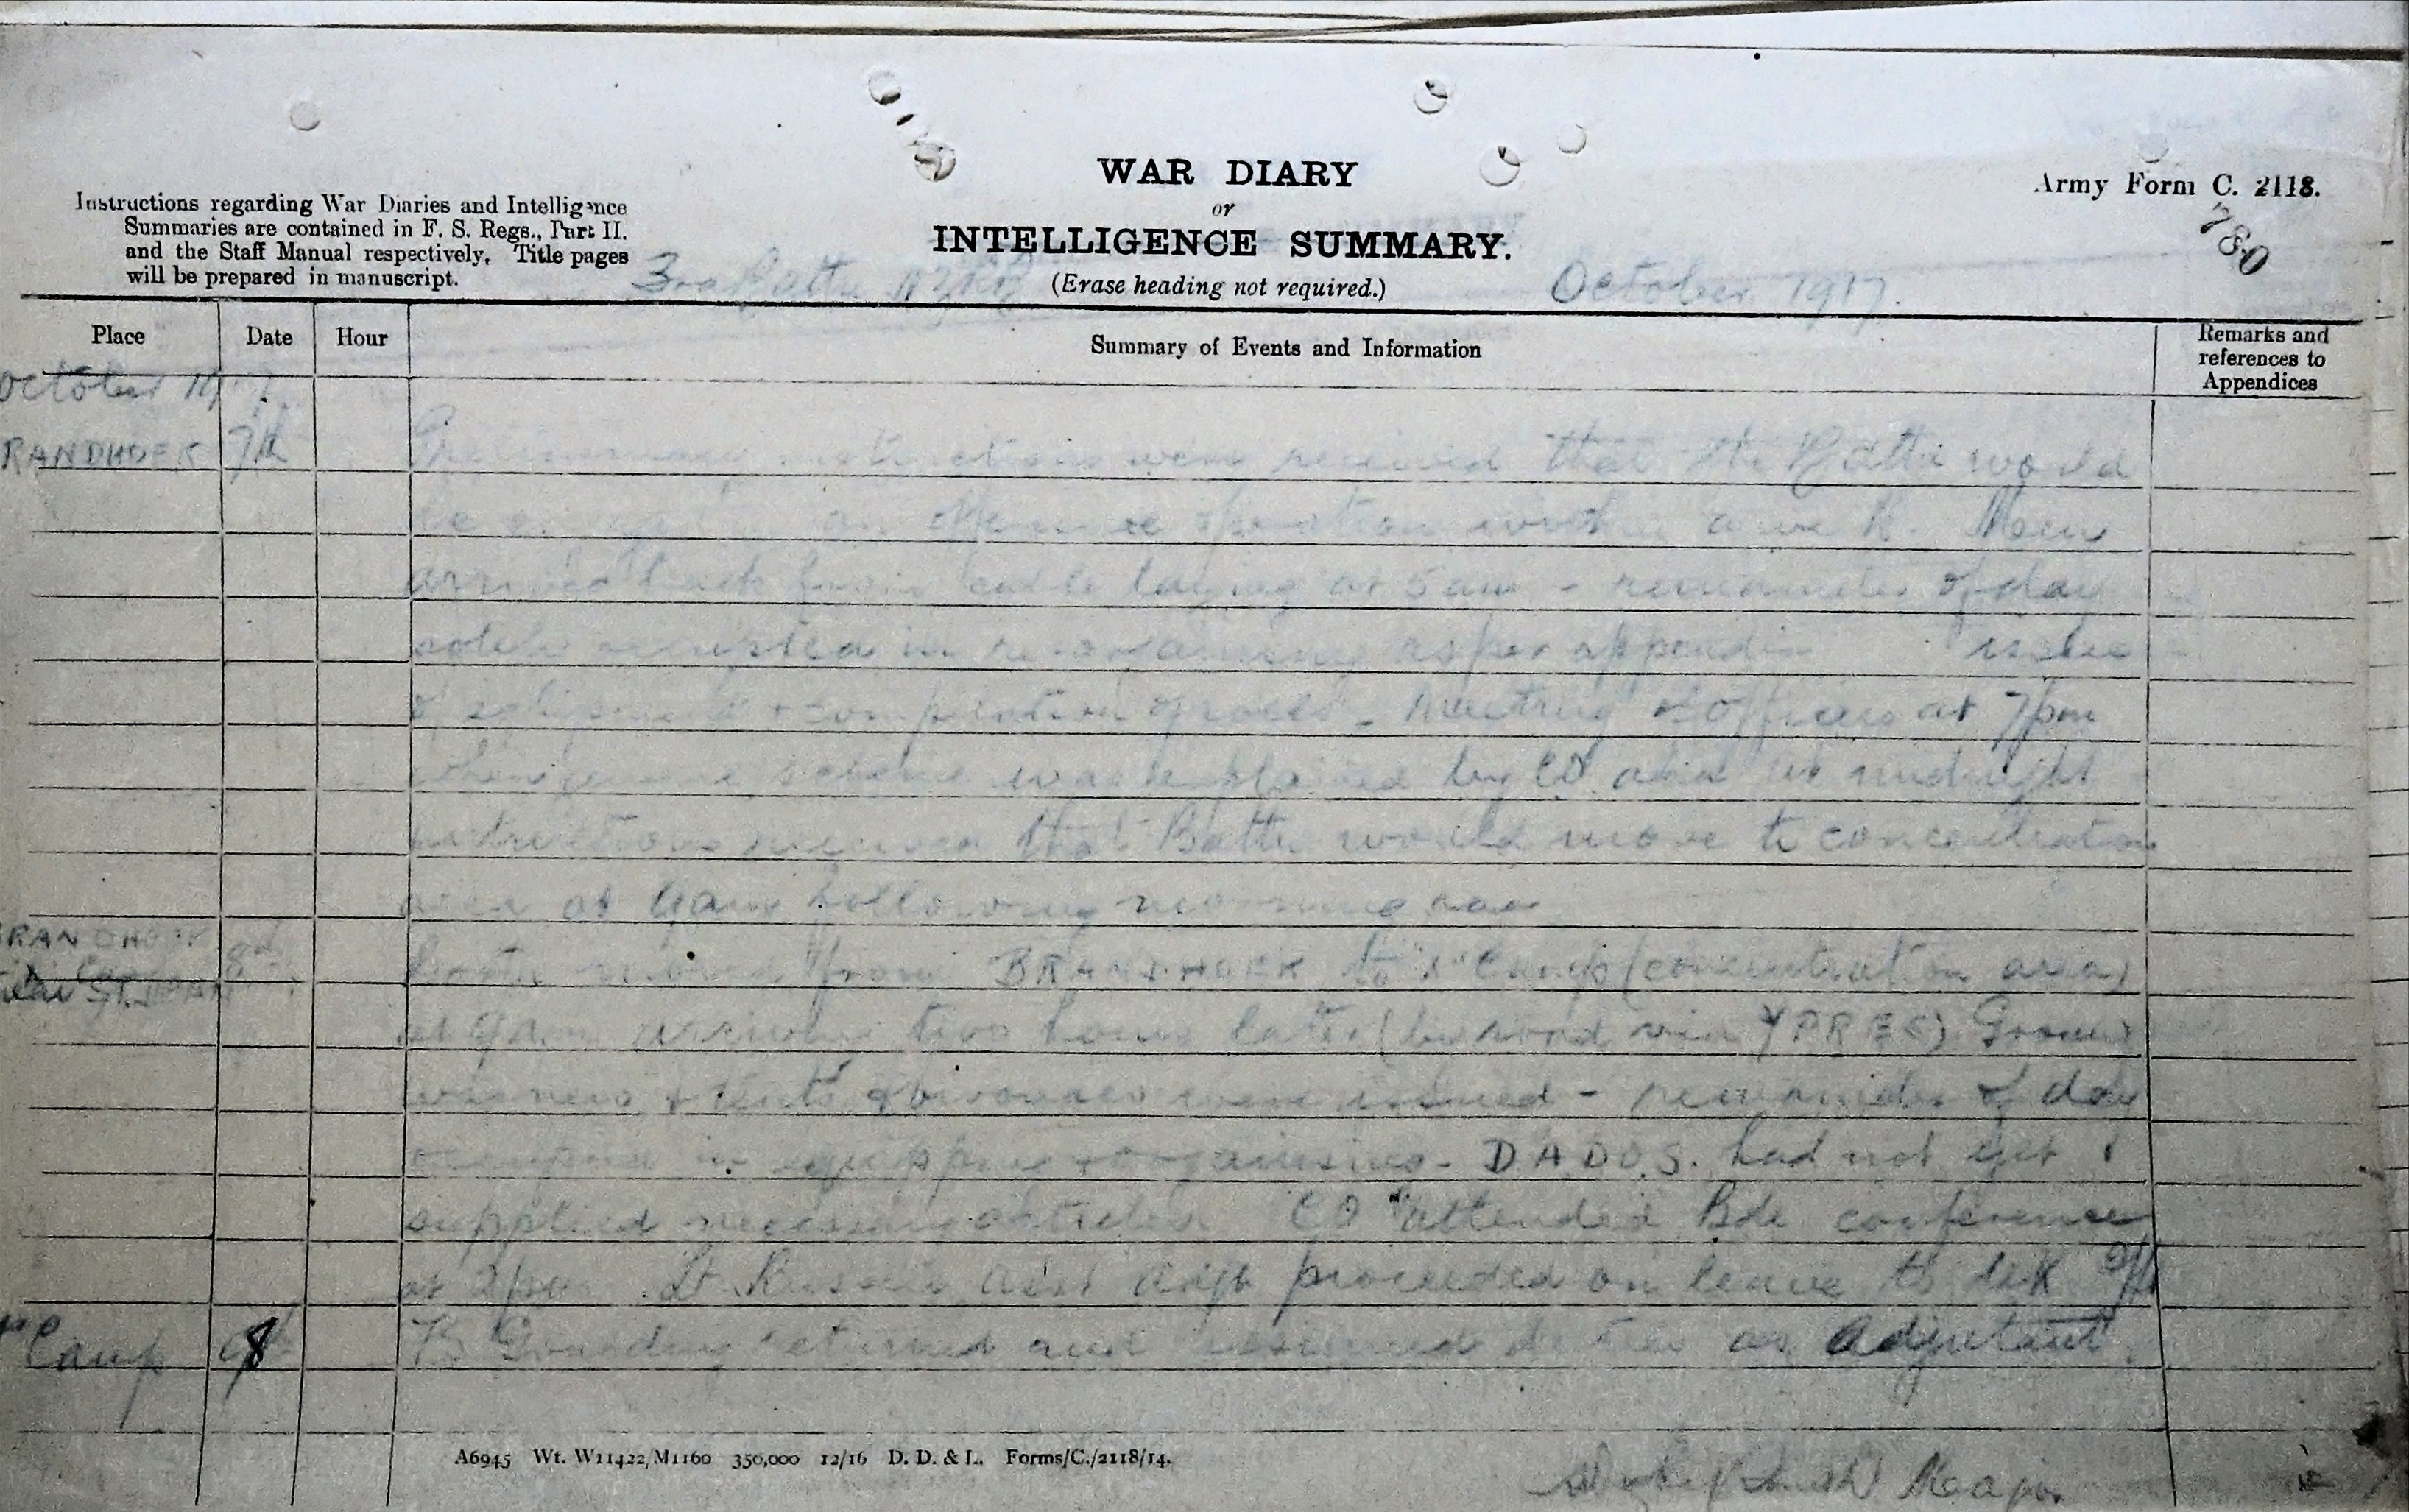 WAR DIARY
or
INTELLIGENCE SUMMARY.
(Erase heading not required.)
Army Form C. 2118.
780
Instructions regarding War Diaries and Intelligence
Summaries are contained in F. S. Regs., Part II.
and the Staff Manual respectively. Title pages
will be prepared in manuscript.
3rd Battn NZRB
October 1917.
Place Date Hour Summary of Events and Information Remarks and references to Appendices
October 1917
RANDHOEK 7th Preliminary instructions were received that the Battn would
be engaged in an offensive operation within a week. Men
arrived back from cable laying at 5 am - remainder of day
solely occupied in reorganising as per appendix issue
of equipment & completion of - Meeting of Officers at 7pm
when scheme was explained by CO and at midnight
instructions received that Battn would move to concentration
area at 9am following morning
RANDHOEK 8th Battn moved from BRANDHOEK to "X" Camp (concentration area)
near ST. JEAN
at 9am arriving two hours later (by road via YPRES) Ground
was & tents & bivouacs were issued - remainder of day
occupied in equipping & organising - D.A.D.O.S. had not yet
supplied necessary articles CO attended Bde conference
at 2pm Lt. asst adjt proceeded on leave to UK
Camp B Goulding returned and assumed duties as Adjutant.
A6945 Wt. W11422/M1160 350,000 12/16 D. D. & L. Forms/C./2118/14.
Major